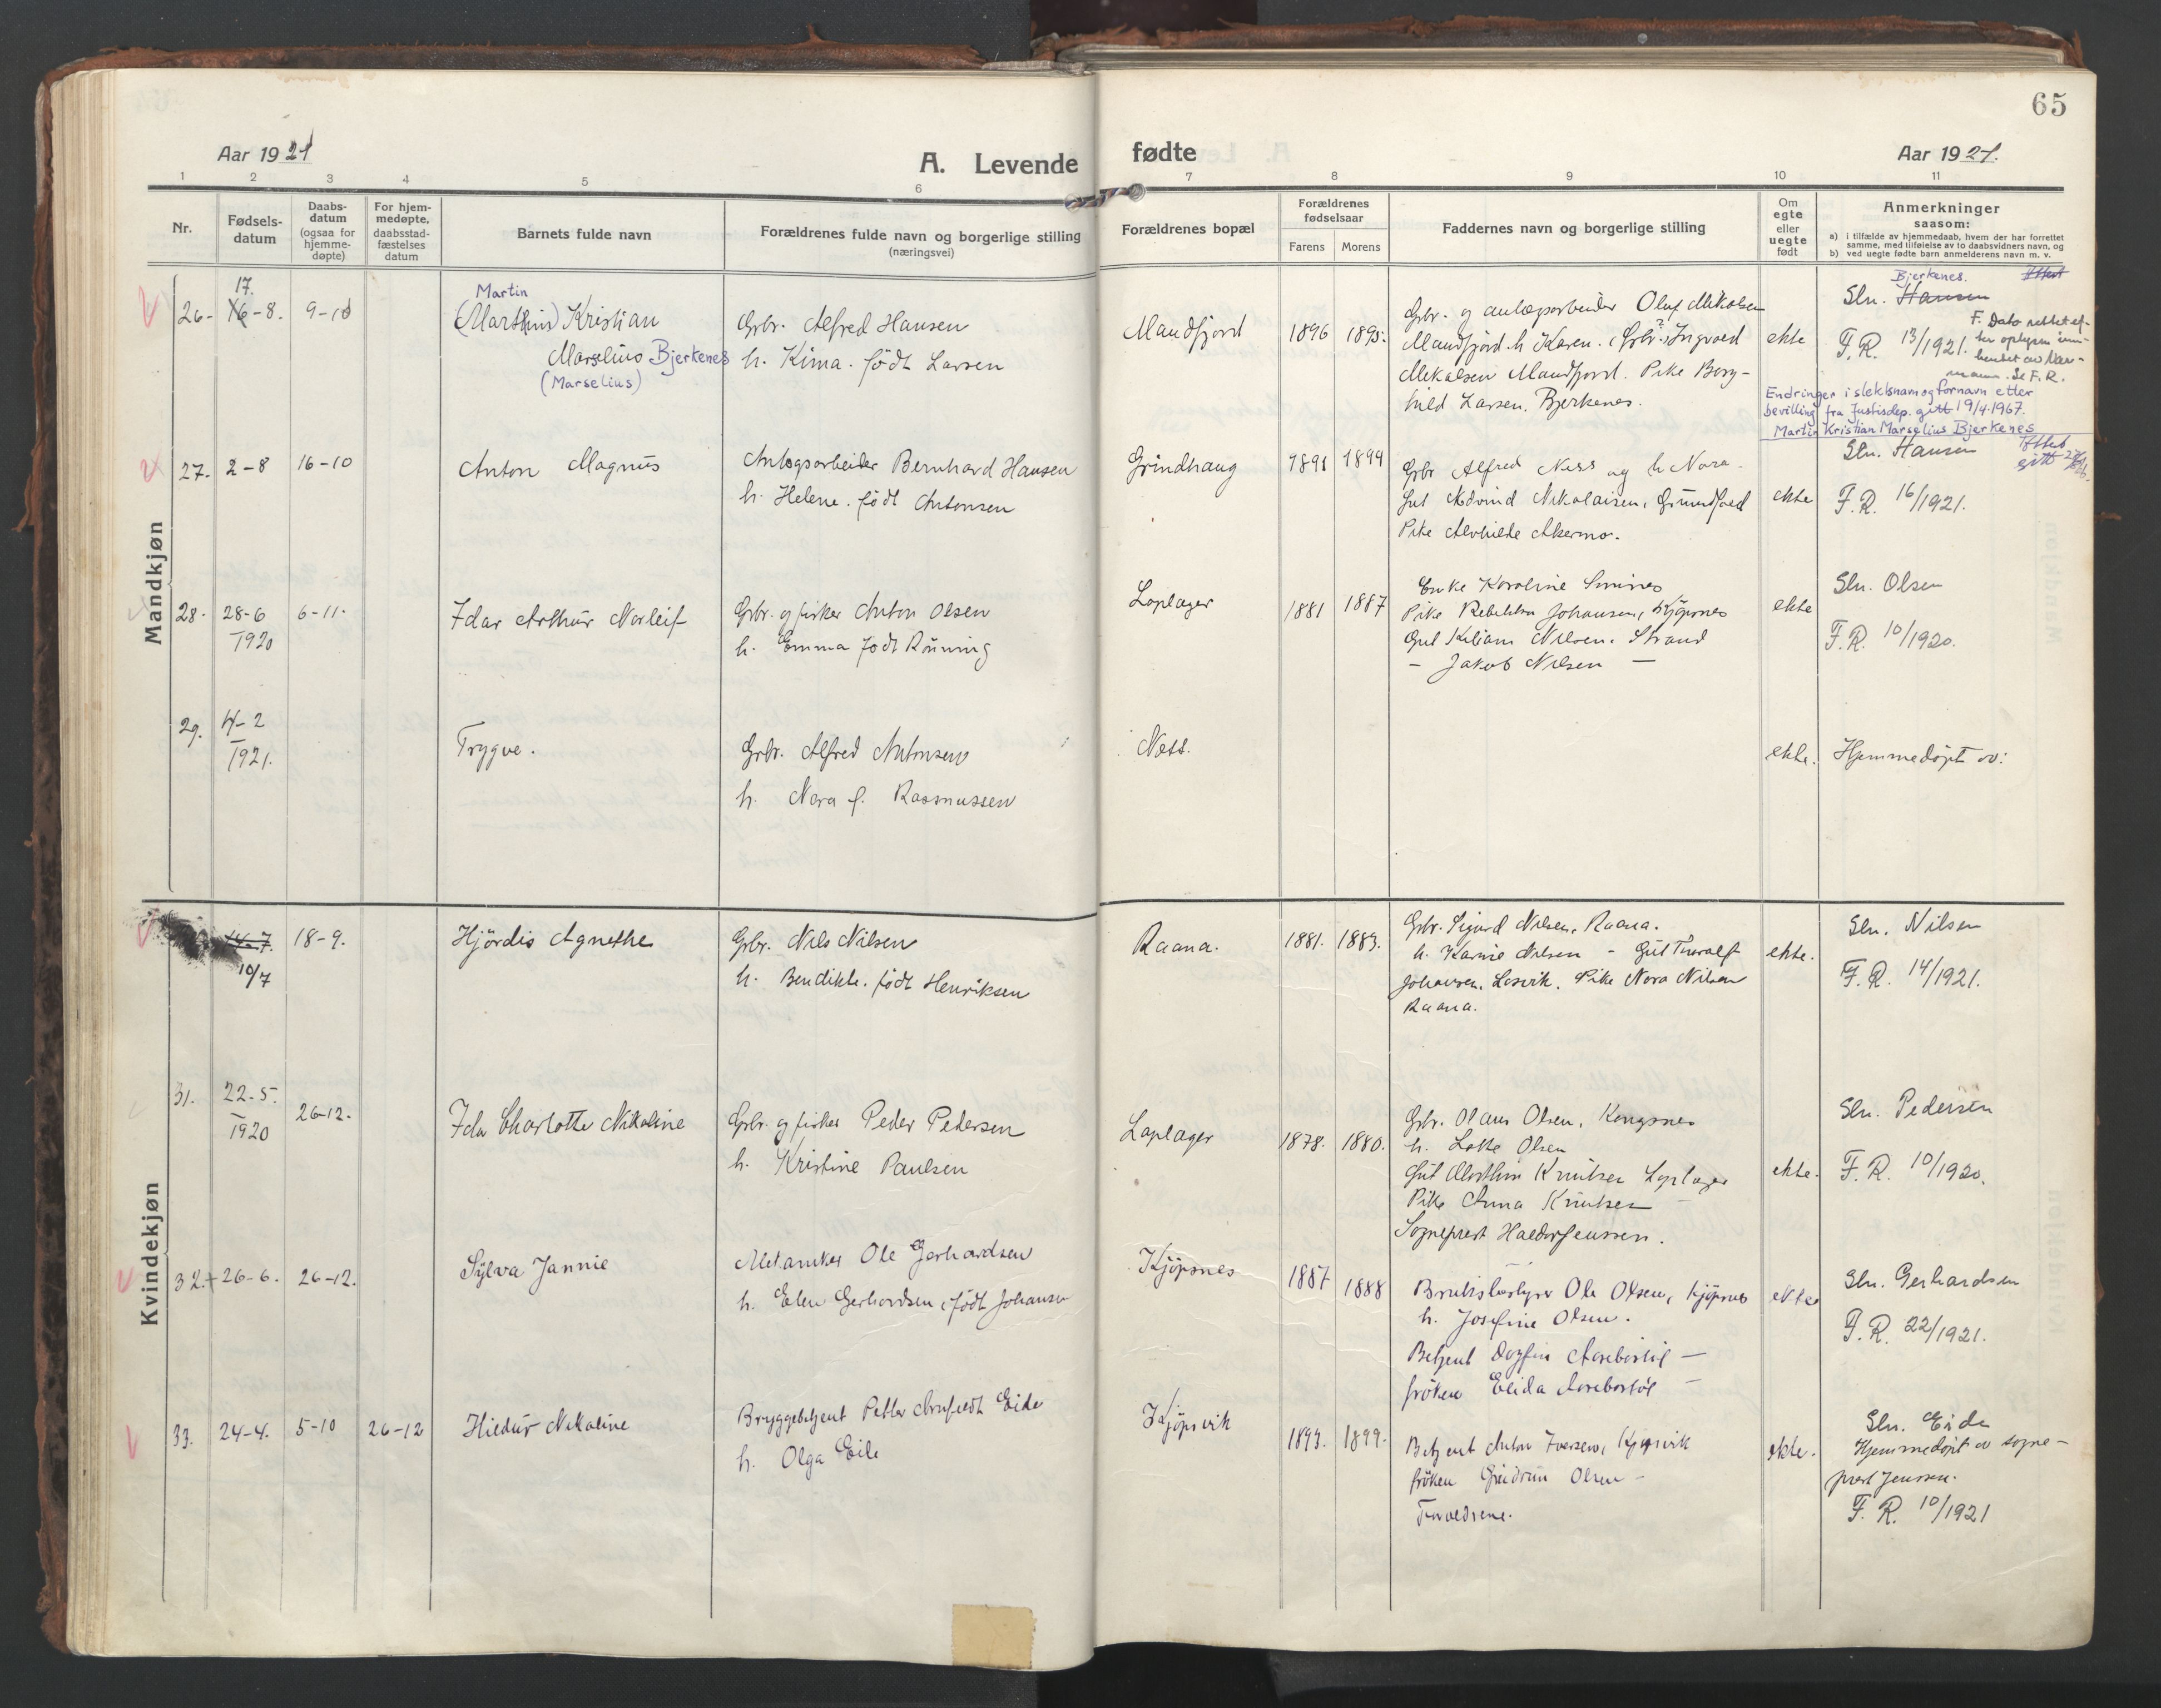 65
Aar 1921
A. Levende
fødte
Aar 1921.
1 2 3 4 5 6 7 8 9 10 11
Nr.
Fødsels-
datum
Daabs-
datum
(ogsaa for
hjemme-
døpte)
For hjem-
medøpte,
daabsstad-
fæstelses
datum
Barnets fulde navn
Forældrenes fulde navn og borgerlige stilling
(næringsvei)
Forældrenes bopæl
Forældrenes
fødselsaar
Farens
Morens
Faddernes navn og borgerlige stilling
Om
egte
eller
uegte
født
Anmerkninger
saasom:
a) i tilfælde av hjemmedaab, hvem der har forrettet
samme, med tilføielse av to daabsvidners navn, og
b) ved uegte fødte barn anmelderens navn m. v.
Mandkjøn
26.
17.
16-8.
9-10
Martin
(Marthin) Kristian
Marselius Bjerkenes
(Marselius)
Grbr. Alfred Hansen
h. Kima. født Larsen
Mandfjord
1896
1895.
Grbr. og anlægsarbeider Oluf Mikalsen
Mandfjord. h. Karen. Grbr. Ingvald
Mikalsen Mandfjord. Pike Borg-
hild Larsen. Bjerkenes.
ekte
Bjerkenes.
Sln. Hansen
F. R. 13/1921.
F. Dato rettet ef-
ter oplysn. inn-
hentet av
Se F. R.
Endringer i slektsnavn og fornavn etter
bevilling fra Justisdep. gitt 19/4-1967.
Martin Kristian Marselius Bjerkenes
27.
2-8
16-10
Anton Magnus
Anlægsarbeider Bernhard Hansen
h. Helene. født Antonsen
Grindhaug
1891
1899
Grbr Alfred Ness og h. Nora.
Gut Edvind Nikolaisen, Grundfjord
Pike Alvhilde Akermo.
ekte
Sln. Hansen
F. R. 16/1921.
28.
28-6
1920
6-11.
Idar Arthur Norleif
Grbr. og fisker Anton Olsen
h. Emma født Rönning
Laplager
1881
1887
Enke Karoline Simines
Pike Rebekka Johansen, Kjöpsnes
Gut Kiliam Nilsen. Strand
— Jakob Nilsen —
ekte
Sln. Olsen
F. R. 10/1920.
29.
4-2
1921.
Trygve.
Grbr. Alfred Antonsen
h. Nora f. Rasmussen
Ness.
ekte.
Hjemmedöpt av:
Kvindekjøn
14-7.
10/7
18-9.
Hjördis Agnethe
Grbr. Nils Nilsen
h. Bendikte. født Henriksen
Raana.
1881.
1883.
Grbr. Sigurd Nilsen, Raana.
h. Karine Nilsen - Gut Thoralf
Johansen, Losvik. Pike Nora Nilsen
Raana.
ekte.
Sln. Nilsen
F. R. 14/1921.
31.
22-5.
1920
26-12.
Ida Charlotte Nikoline
Grbr. og fisker Peder Pedersen
h. Kristine Paulsen
Laplager
1878.
1880.
Grbr. Olaus Olsen, Kongsnes
h. Lotte Olsen
Gut Marthin Knutsen Laplager
Pike Anna Knutsen —
Sogneprest Haldor Jenssen.
ekte.
Sln. Pedersen
F. R. 10/1920.
32.
26-6.
26-12.
Sylva Jannie
Mekaniker Ole Gerhardsen
h. Elen Gerhardsen, født Johansen
Kjöpsnes
1887
1888
Bruksbestyrer Ole Olsen, Kjöpsnes
h. Josefine Olsen.
Betjent Dagfin Aasebostöl —
fröken Elida Aasebostöl —
ekte
Sln. Gerhardsen
F. R. 22/1921.
33.
24-4.
5-10
26-12
Hildur Nikoline
Bryggebetjent Petter Arnfeldt Eide
h. Olga Eide
Kjöpsvik
1893.
1899.
Betjent Anton Iversen, Kjöpsvik
fröken Gudrun Olsen -
Foreldrene.
ekte.
Sln. Eide
Hjemmedöpt av sogne-
prest Jenssen.
F. R. 10/1921